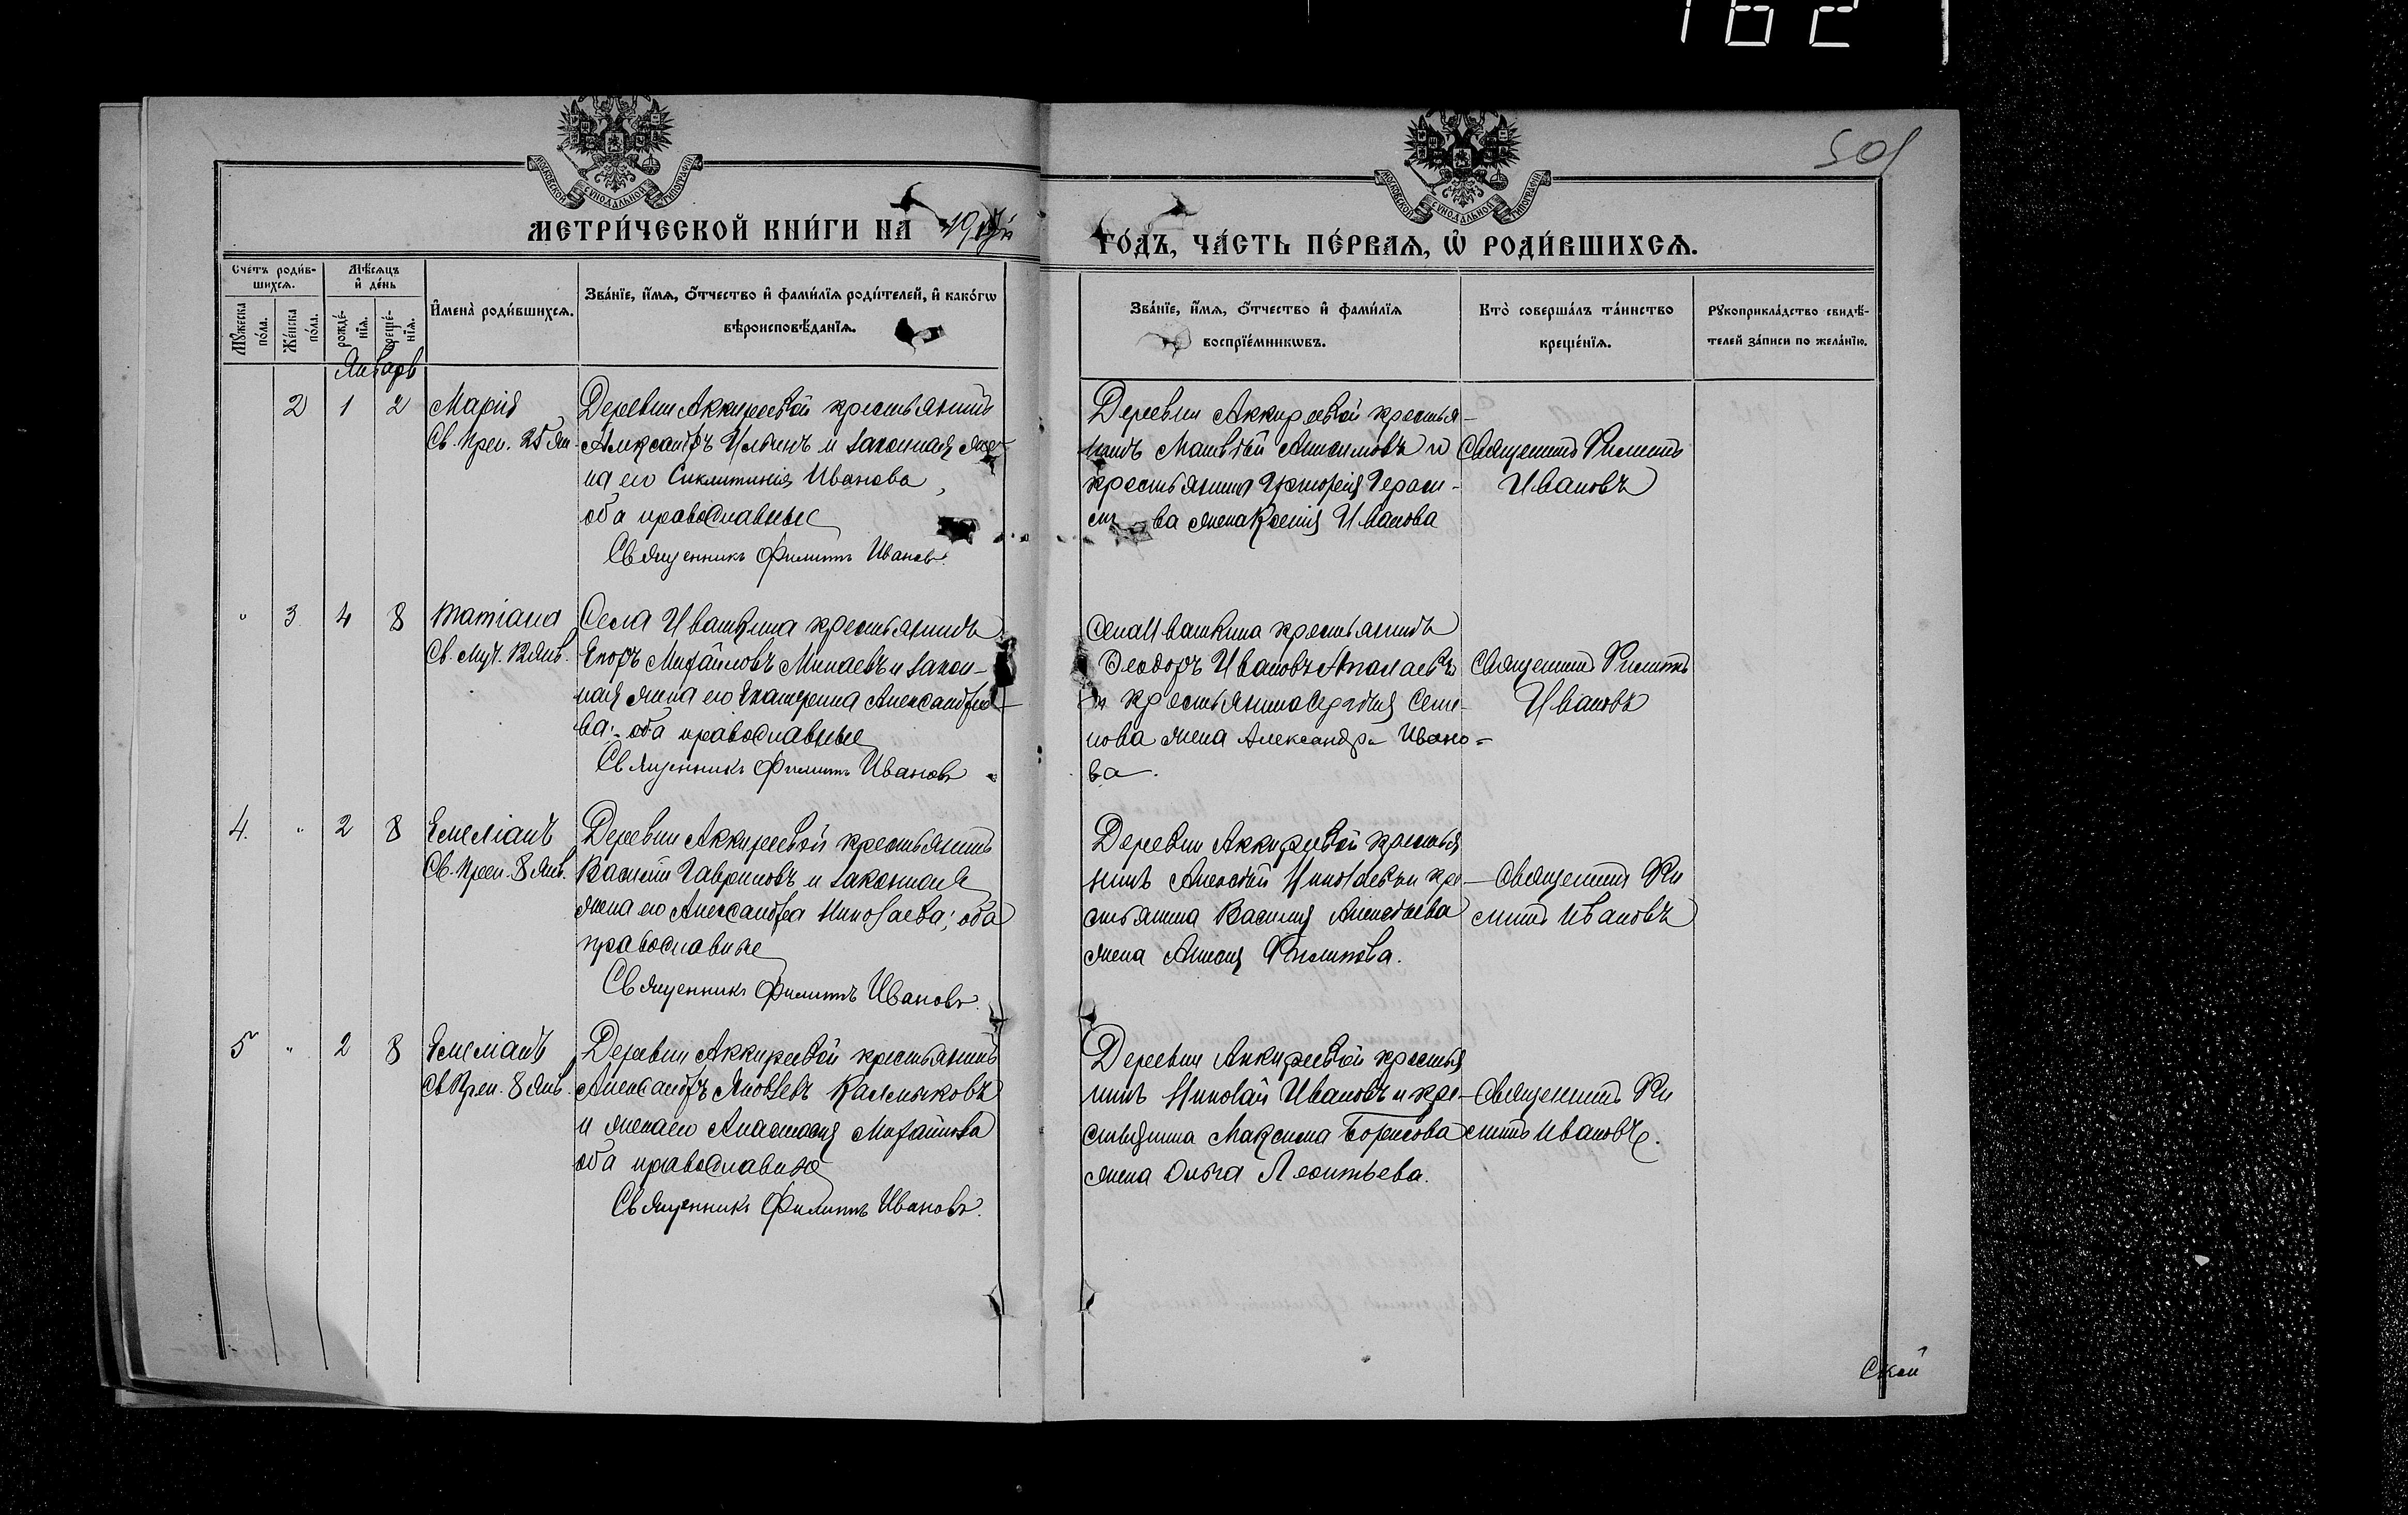 162
501
МОСКОВСКОЙ СѴНОДАЛЬНОЙ ТИПОГРАФІИ
МОСКОВСКОЙ СѴНОДАЛЬНОЙ ТИПОГРАФІИ
МЕТРИ́ЧЕСКОЙ КНИ́ГИ НА 19
ГО́ДЪ, ЧА́СТЬ ПЕ́РВАѦ, Ѡ РОДИ́ВШИХСѦ.
Сче́тъ роди́в-
шихсѧ.
Мѣ́сѧцъ
и҆ де́нь
Мꙋ́жеска
по́ла.
Же́нска
по́ла.
рожде́-
нїѧ.
креще́-
нїѧ.
И҆мена̀ роди́вшихсѧ.
Зва́нїе, и҆́мѧ, ѻ҆́тчество и҆ фами́лїѧ роди́телей, и҆ како́гѡ
вѣроисповѣ́данїѧ.
Зва́нїе, и҆́мѧ, ѻ҆́тчество и҆ фами́лїѧ
воспрїе́мникѡвъ.
Кто̀ соверша́лъ та́инство
креще́нїѧ.
Рꙋкоприкла́дство свидѣ́-
телей за́писи по жела́нїю.
Январь
2 1 2 Марія
Св. Преп. 25 Ян.
Деревни Аккиреевой крестьянинъ
Александръ Ильинъ и законная же-
на его Сиклитикія Иванова
оба православные
Священникъ Филиппъ Ивановъ.
Деревни Аккиреевой крестья-
нинъ Матвѣй Анисимовъ и
крестьянина Григорія Гераси-
ва жена Ксенія Иванова
Священникъ Филиппъ
Ивановъ
" 3. 4 8 Татіана
Св. муч. 12 Янв.
Села Ивашкина крестьянинъ
Егоръ Михайловъ Минаевъ и закон-
ная жена его Екатерина Александро-
ва; оба православные
Священникъ Филиппъ Ивановъ
Села Ивашкина крестьянинъ
Ѳеодоръ Ивановъ
и крестьянина Сергія Семе-
нова жена Александра Ивано-
ва.
Священникъ Филиппъ
Ивановъ
4. " 2 8 Емеліанъ
Св. Преп. 8 Янв.
Деревни Аккиреевой крестьянинъ
Василій Гавриловъ и законная
жена его Александра Николаева; оба
православные
Священникъ Филиппъ Ивановъ.
Деревни Аккиреевой крестья
нинъ Алексѣй Николаевъ и кре-
стьянина Василія Алексѣева
жена Анисія Филипова.
Священникъ Фи
липпъ Ивановъ
5 " 2 8 Емеліанъ
Св Преп. 8 Янв.
Деревни Аккиреевой крестьянинъ
Александръ Яковлевъ Калмыковъ
и жена его Анастасія Михайлова
оба православные
Священникъ Филиппъ Ивановъ.
Деревни Аккиреевой крестья
нинъ Николай Ивановъ и кре-
стьянина Максима Борисова
жена Ольга Леонтьева.
Священникъ Фи
липпъ Ивановъ.
Ской